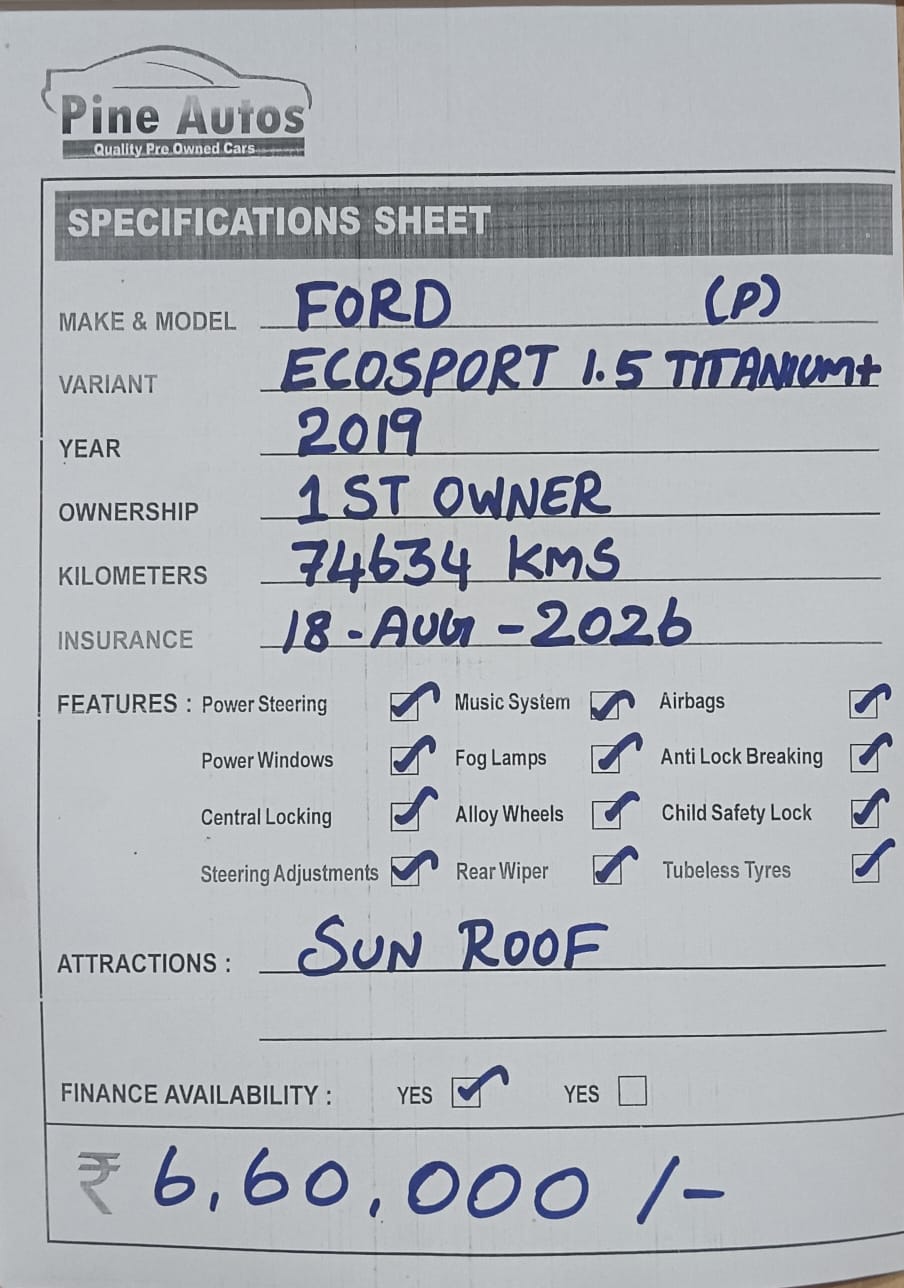 Pine Autos
Quality Pre Owned Cars
SPECIFICATIONS SHEET
MAKE & MODEL FORD (P)
VARIANT ECOSPORT 1.5 TITANIUM+
YEAR 2019
OWNERSHIP 1 ST OWNER
KILOMETERS 74634 KMS
INSURANCE 18-AUG-2026
FEATURES : Power Steering Music System Airbags
Power Windows Fog Lamps Anti Lock Breaking
Central Locking Alloy Wheels Child Safety Lock
Steering Adjustments Rear Wiper Tubeless Tyres
ATTRACTIONS : SUN ROOF
FINANCE AVAILABILITY : YES YES
₹ 6,60,000/-